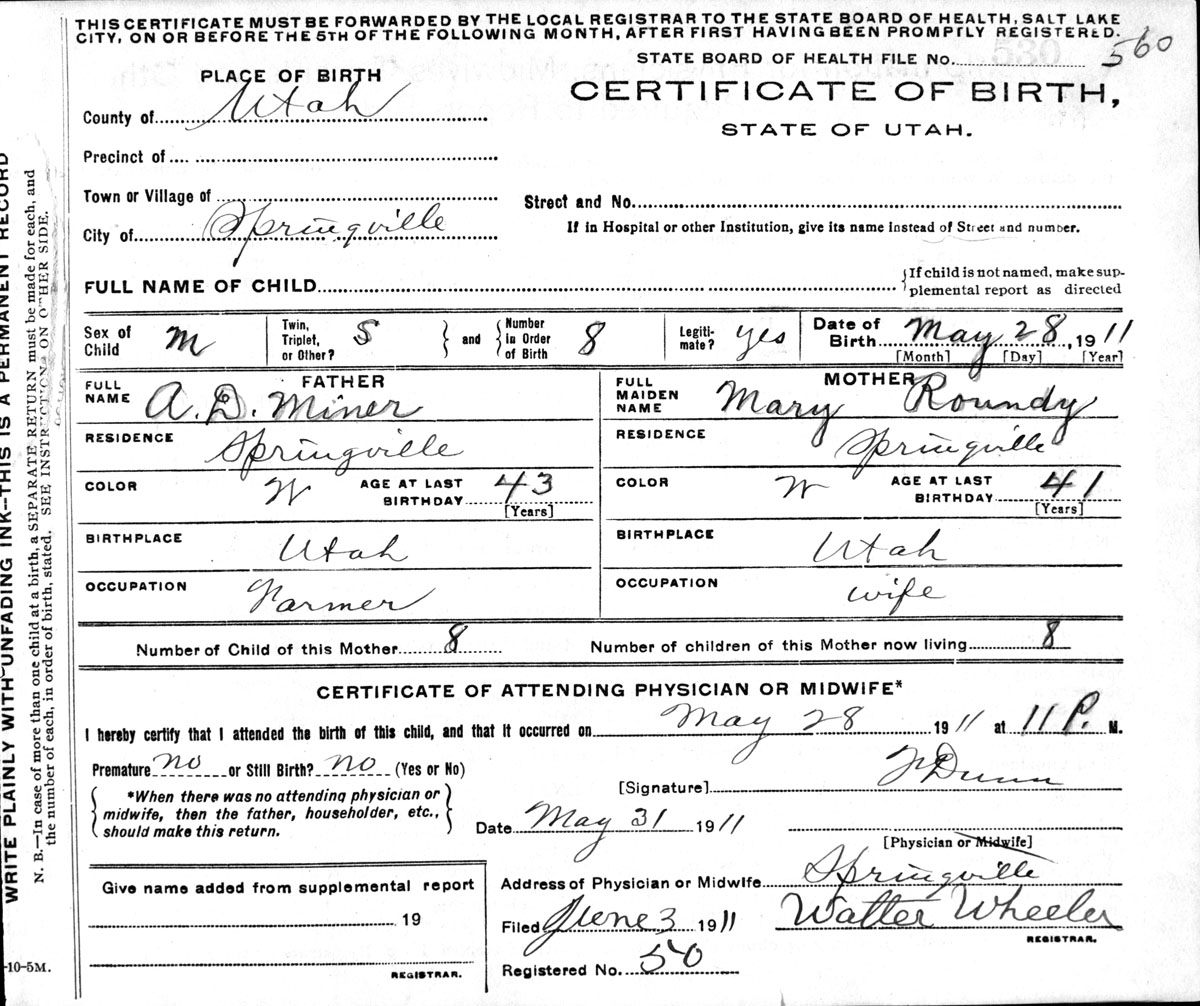 THIS CERTIFICATE MUST BE FORWARDED BY THE LOCAL REGISTRAR TO THE STATE BOARD OF HEALTH, SALT LAKE
CITY, ON OR BEFORE THE 5TH OF THE FOLLOWING MONTH, AFTER FIRST HAVING BEEN PROMPTLY REGISTERED.
STATE BOARD OF HEALTH FILE No. 560
PLACE OF BIRTH
CERTIFICATE OF BIRTH,
STATE OF UTAH.
County of Utah
Precinct of
Town or Village of
City of Springville
Street and No.
If in Hospital or other Institution, give its name instead of Street and number.
FULL NAME OF CHILD
{If child is not named, make sup-
plemental report as directed
Sex of Child M
Twin, Triplet, or Other? S
and
Number in Order of Birth 8
Legiti-mate? yes
Date of Birth May 28, 1911
[Month] [Day] [Year]
FATHER
FULL NAME A. D. Miner
RESIDENCE Springville
COLOR W
AGE AT LAST BIRTHDAY 43
[Years]
BIRTHPLACE Utah
OCCUPATION Farmer
MOTHER
FULL MAIDEN NAME Mary Roundy
RESIDENCE Springville
COLOR W
AGE AT LAST BIRTHDAY 41
[Years]
BIRTHPLACE Utah
OCCUPATION wife
Number of Child of this Mother 8 Number of children of this Mother now living 8
CERTIFICATE OF ATTENDING PHYSICIAN OR MIDWIFE*
I hereby certify that I attended the birth of this child, and that it occurred on May 28 1911 at 11 P. M.
Premature no or Still Birth? no (Yes or No)
*When there was no attending physician or
midwife, then the father, householder, etc.,
should make this return.
[Signature] Dunn
Date May 31 1911
[Physician or Midwife]
Give name added from supplemental report
19
REGISTRAR.
Address of Physician or Midwife Springville
Filed June 3 1911 Walter Wheeler
REGISTRAR.
Registered No. 50
-10-5M.
WRITE PLAINLY WITH UNFADING INK—THIS IS A PERMANENT RECORD
N. B.—In case of more than one child at a birth, a SEPARATE RETURN must be made for each, and
the number of each, in order of birth, stated. SEE INSTRUCTIONS ON OTHER SIDE.